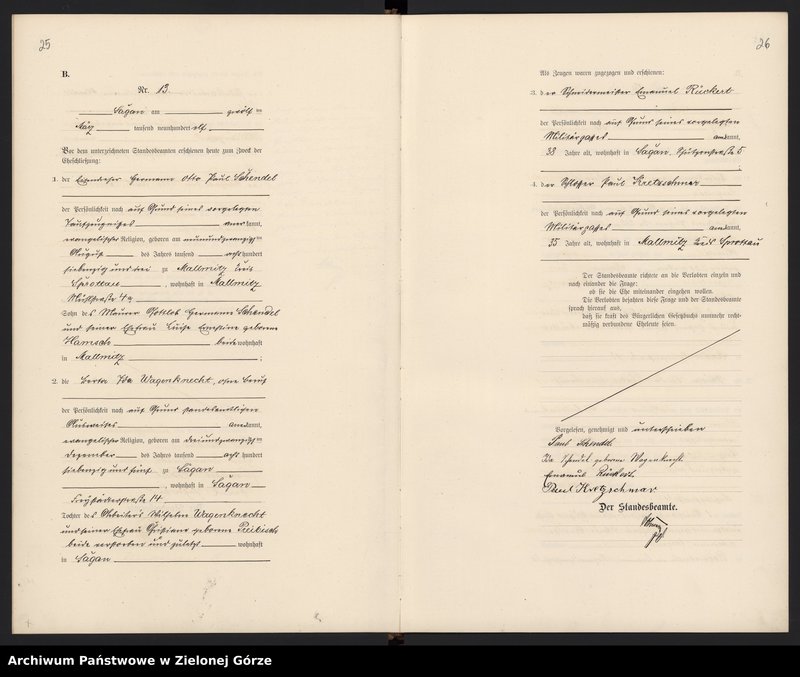 25
B.
Nr. 13.
Sagan am zwölften
März tausend neunhundert elf
Vor dem unterzeichneten Standesbeamten erschienen heute zum Zweck der
Eheschließung:
1. der Eisendreher Hermann Otto Paul Schendel
der Persönlichkeit nach auf Grund seines vorgelegten
Taufzeugnisses anerkannt,
evangelischer Religion, geboren am neunundzwanzigsten
August des Jahres tausend achthundert
siebenzig und drei zu Mallmitz Kreis
Sprottau, wohnhaft in Mallmitz
4a
Sohn des Maurer Gottlob Hermann Schendel
und seiner Ehefrau Luise Ernestine geborene
beide wohnhaft
in Mallmitz ;
2. die Berta Ida Wagenknecht, ohne Beruf
der Persönlichkeit nach auf Grund standesamtlichen
Ausweises anerkannt,
evangelischer Religion, geboren am dreiundzwanzigsten
Dezember des Jahres tausend achthundert
siebenzig und fünf zu Sagan
, wohnhaft in Sagan
14
Tochter des Arbeiters Wilhelm Wagenknecht
und seiner Ehefrau geborene
beide verstorben und zuletzt wohnhaft
in Sagan
26
Als Zeugen waren zugezogen und erschienen:
3. der Schneidermeister Emanuel Rückert
der Persönlichkeit nach auf Grund seines vorgelegten
Militärpasses anerkannt,
38 Jahre alt, wohnhaft in Sagan, Schützenstraße 5
;
4. der Schlosser Paul Kretzschmar
der Persönlichkeit nach auf Grund seines vorgelegten
Militärpasses anerkannt,
35 Jahre alt, wohnhaft in Mallmitz Kreis Sprottau
Der Standesbeamte richtete an die Verlobten einzeln und
nach einander die Frage:
ob sie die Ehe miteinander eingehen wollen.
Die Verlobten bejahten diese Frage und der Standesbeamte
sprach hierauf aus,
daß sie kraft des Bürgerlichen Gesetzbuchs nunmehr recht-
mäßig verbundene Eheleute seien.
Vorgelesen, genehmigt und unterschrieben
Paul Schendel
Ida Schendel geborene Wagenknecht.
Emanuel Rückert.
Paul Kretzschmar
Der Standesbeamte.
Archiwum Państwowe w Zielonej Górze